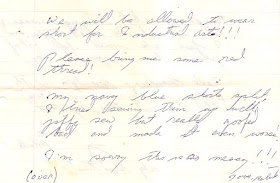 We will be allowed to wear
short for Industrial Arts!!!
Please bring me some red
thread!
My navy blue skirts split
& I tried sewing them up
but really goofed
and made it even worse!
I'm sorry this is so messy!!!
(over) Love,